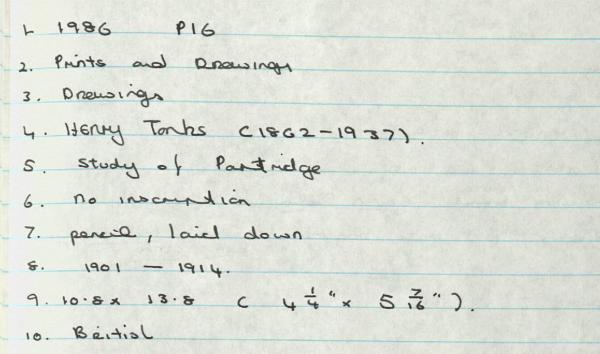 1. 1986 P16
2. Prints and Drawings
3. Drawings
4. Henry Tonks (1862-1937).
5. Study of Partridge
6. no inscription
7. pencil, laid down
8. 1901 - 1914.
9. 10.8 x 13.8 ( 4 1/4" x 5 7/16" ).
10. British